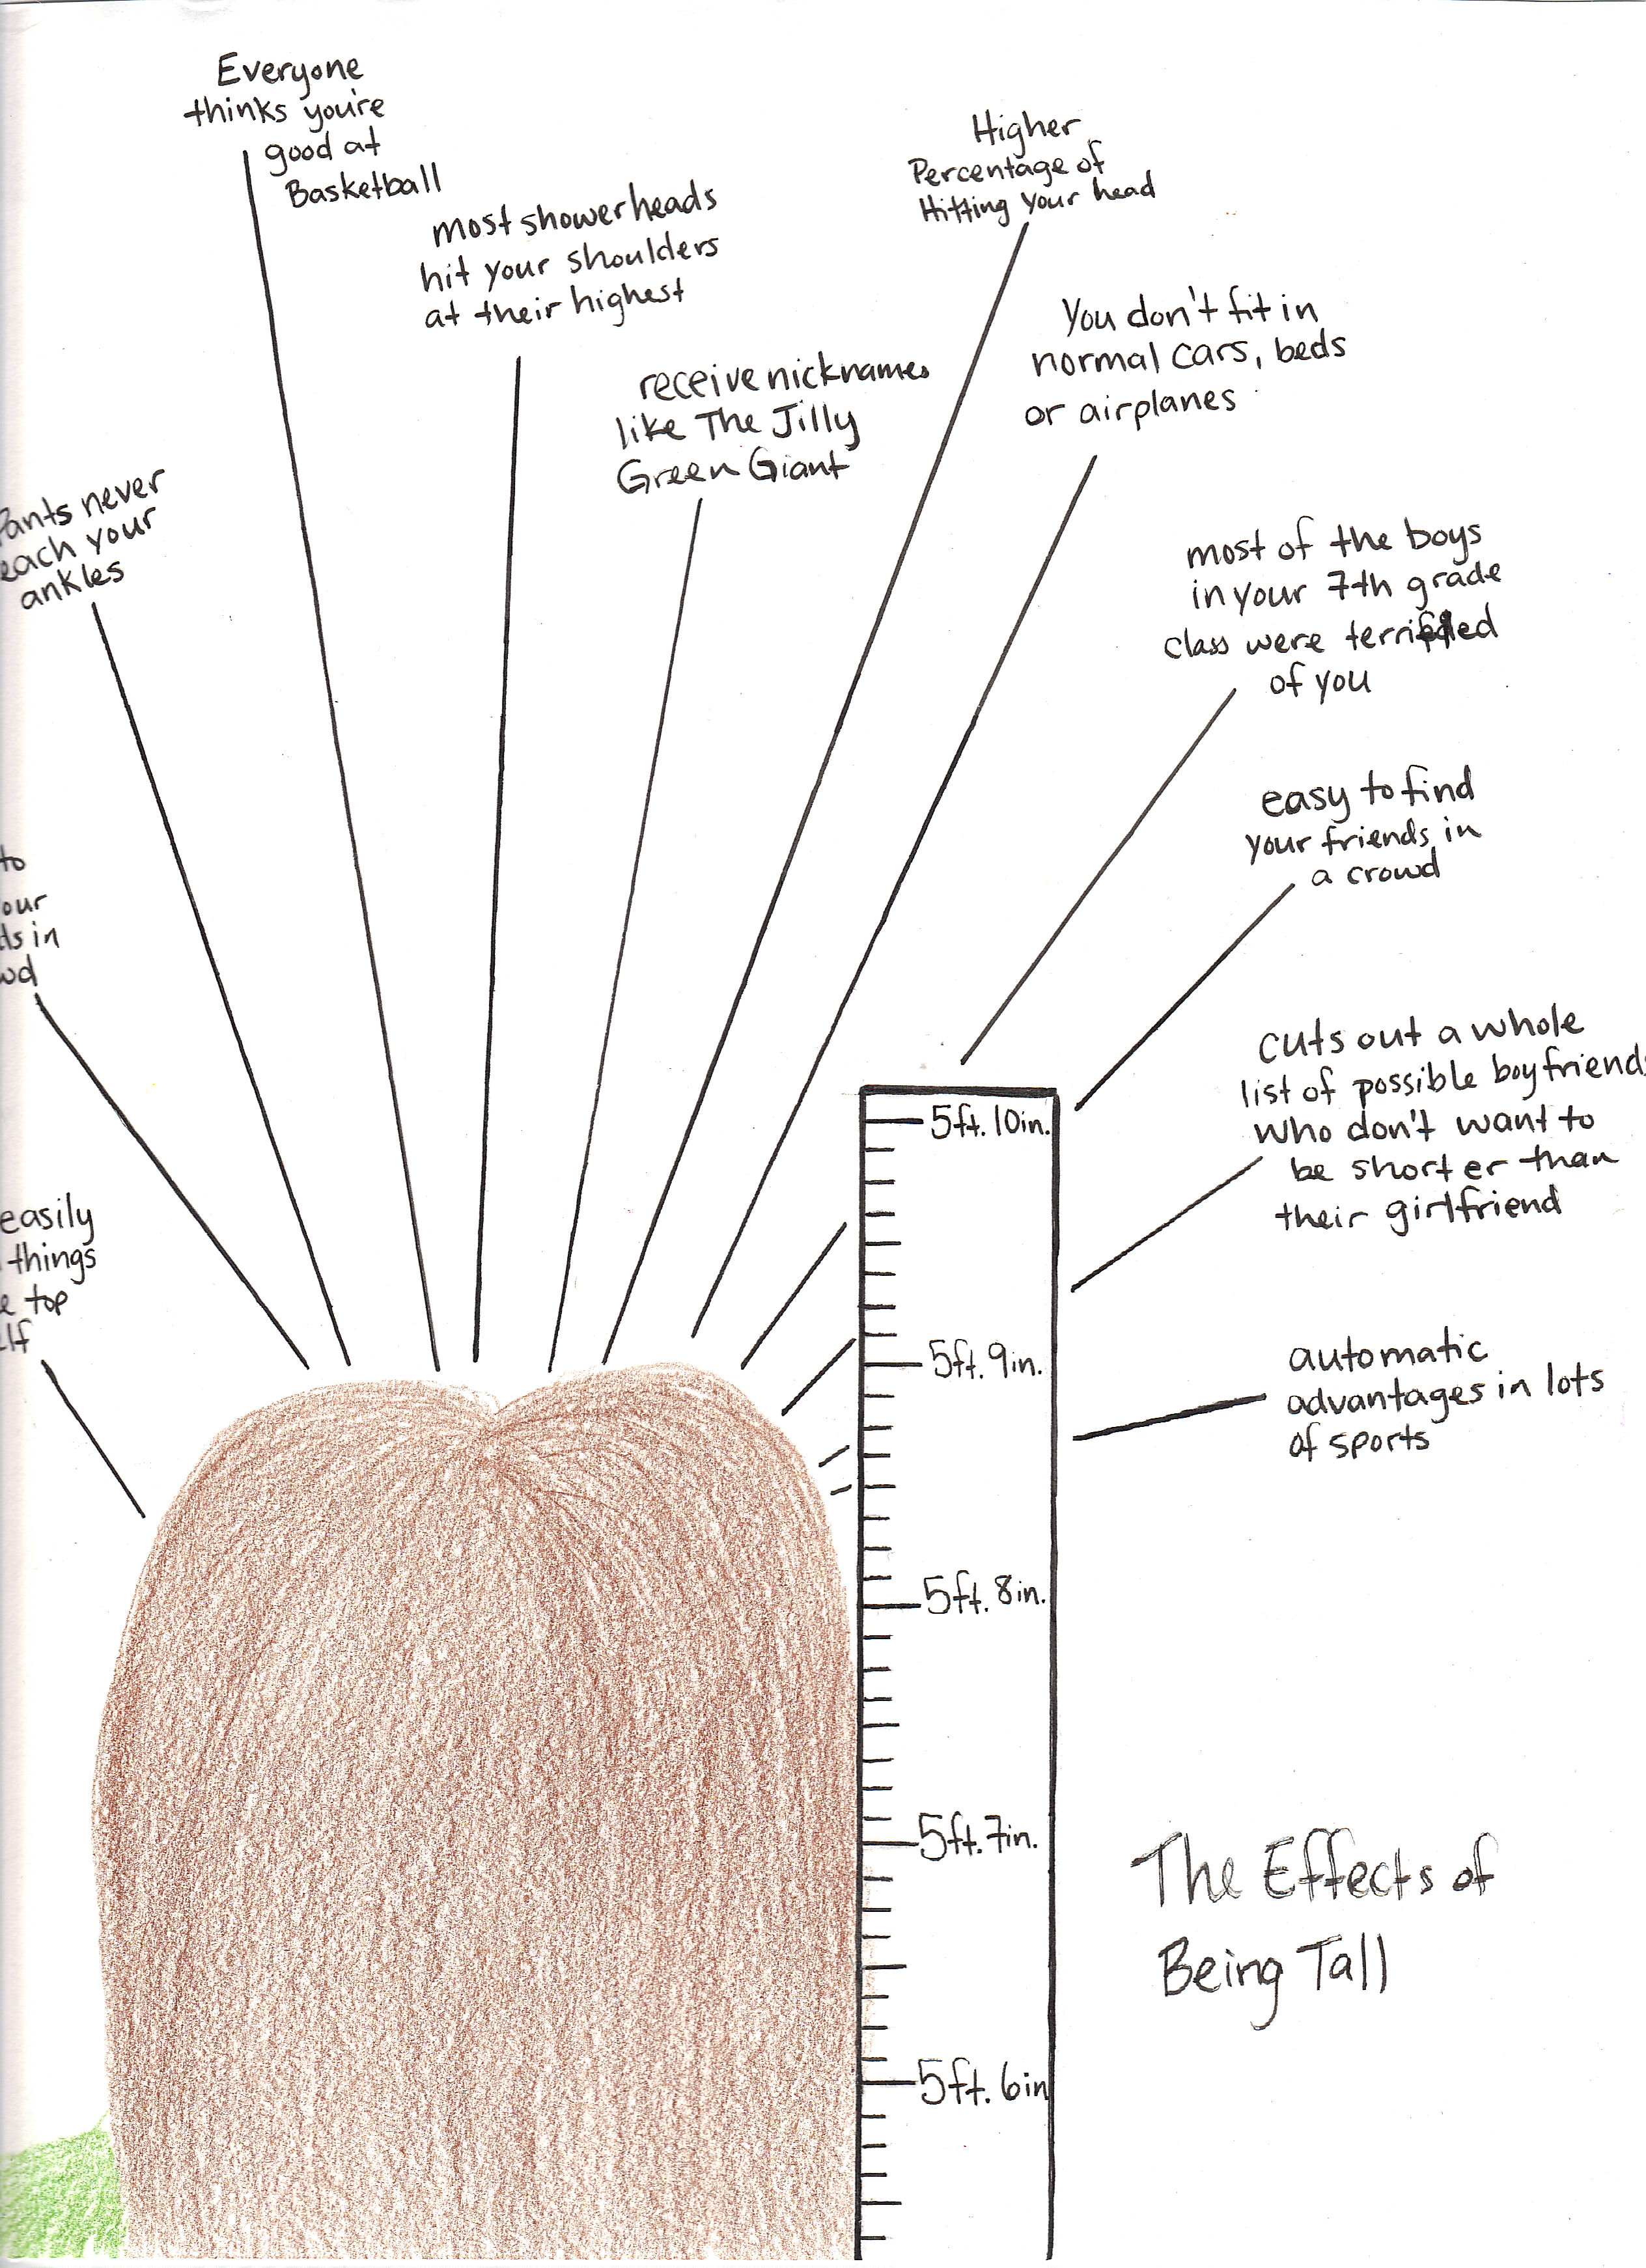 Everyone
thinks you're
good at
Basketball
most showerheads
hit your shoulders
at their highest
Higher
Percentage of
Hitting your head
receive nicknames
like The Jilly
Green Giant
You don't fit in
normal cars, beds
or airplanes
never
your
ankles
most of the boys
in your 7th grade
class were terrified
of you
easy to find
your friends in
a crowd
to
in
cuts out a whole
list of possible boyfriends
who don't want to
be shorter than
their girlfriend
easily
things
top
automatic
advantages in lots
of sports
5ft. 10in.
5ft. 9in.
5ft. 8in.
5ft. 7in.
5ft. 6in
The Effects of
Being Tall